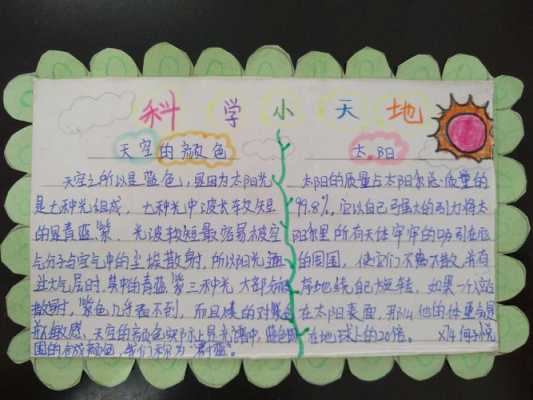 科学小天地
天空的颜色
天空之所以是蓝色,是因为太阳光
是七种光组成,七种光中波长较短
的是青蓝紫,光波较短最容易被空
气分子与空气中的尘埃散射,所以阳光通
过大气层时,其中的青蓝紫三种光大部分被
散射,紫色几乎看不到,而且人的对紫色
不敏感,天空的颜色实际上是光谱中蓝色
围的合成颜色,我们称为"蔚蓝"。
太阳
太阳的质量占太阳系总质量的
99.8%,它以自己强大的引力将太
阳系里所有天体牢牢的吸引在它
的周围,使它们不离不散,并有
序地绕自己旋转,如果一个人站
在太阳表面,那么他的体重会是
在地球上的20倍。